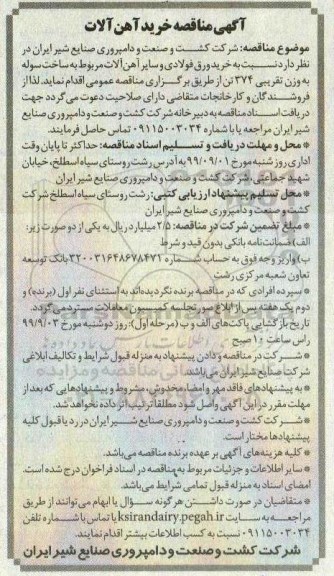 آگهی مناقصه خرید آهن آلات
موضوع مناقصه: شرکت کشت و صنعت و دامپروری صنایع شیر ایران در
نظر دارد نسبت به خرید ورق فولادی و سایر آهن آلات مربوط به ساخت سوله
به وزن تقریبی ۳۷۴ تن از طریق برگزاری مناقصه عمومی اقدام نماید. لذا از
فروشندگان و کارخانجات متقاضی دارای صلاحیت دعوت می گردد جهت
دریافت اسناد مناقصه به دبیرخانه شرکت کشت و صنعت و دامپروری صنایع
شیر ایران مراجعه یا با شماره ۰۹۱۱۵۰۰۳۰۳۴ تماس حاصل فرمایند.
* محل و مهلت دریافت و تسلیم اسناد مناقصه: حداکثر تا پایان وقت
اداری روز شنبه مورخ ۹۹/۰۹/۰۱ به آدرس رشت روستای سیاه اسطلخ، خیابان
شهید جماعتی، شرکت کشت و صنعت و دامپروری صنایع شیر ایران
* محل تسلیم پیشنهاد ارزیابی کتبی: رشت روستای سیاه اسطلخ شرکت
کشت و صنعت و دامپروری صنایع شیر ایران
* مبلغ تضمین شرکت در مناقصه: ۲/۵ میلیارد ریال به یکی از دو صورت زیر:
الف) ضمانت نامه بانکی بدون قید و شرط
ب) واریز وجه فوق به حساب شماره ۳۲۰۰۲۱۶۴۸۶۷۸۴۷۱ بانک توسعه
تعاون شعبه مرکزی رشت
* سپرده افرادی که در مناقصه برنده نگردیده اند به استثنای نفر اول (برنده) و
دوم یک هفته پس از ابلاغ صورتجلسه کمیسیون معاملات مسترد می گردد.
تاریخ بازگشایی پاکت های الف و ب (مرحله اول): روز دوشنبه مورخ ۹۹/۹/۰۳
راس ساعت ۱۰ صبح
* شرکت در مناقصه و دادن پیشنهاد به منزله قبول شرایط و تکالیف ابلاغی
شرکت صنایع شیر ایران می باشد.
* به پیشنهادهای فاقد مهر و امضا، مخدوش، مشروط و پیشنهادهایی که بعد از
مهلت مقرر در این آگهی واصل شود مطلقا ترتیب اثر داده نخواهد شد.
* شرکت کشت و صنعت و دامپروری صنایع شیر ایران در رد یا قبول کلیه
پیشنهادها مختار است.
* کلیه هزینه های آگهی بر عهده برنده مناقصه می باشد.
* سایر اطلاعات و جزئیات مربوط به مناقصه در اسناد فراخوان درج شده است.
امضای اسناد به منزله قبول تمامی شرایط می باشد.
* متقاضیان در صورت داشتن هرگونه سؤال یا ابهام می توانند از طریق
مراجعه به سایت ksirandairy.pegah.ir یا تماس با شماره تلفن
۰۹۱۱۵۰۰۳۰۳۴ نسبت به کسب اطلاعات بیشتر اقدام نمایند.
شرکت کشت و صنعت و دامپروری صنایع شیر ایران